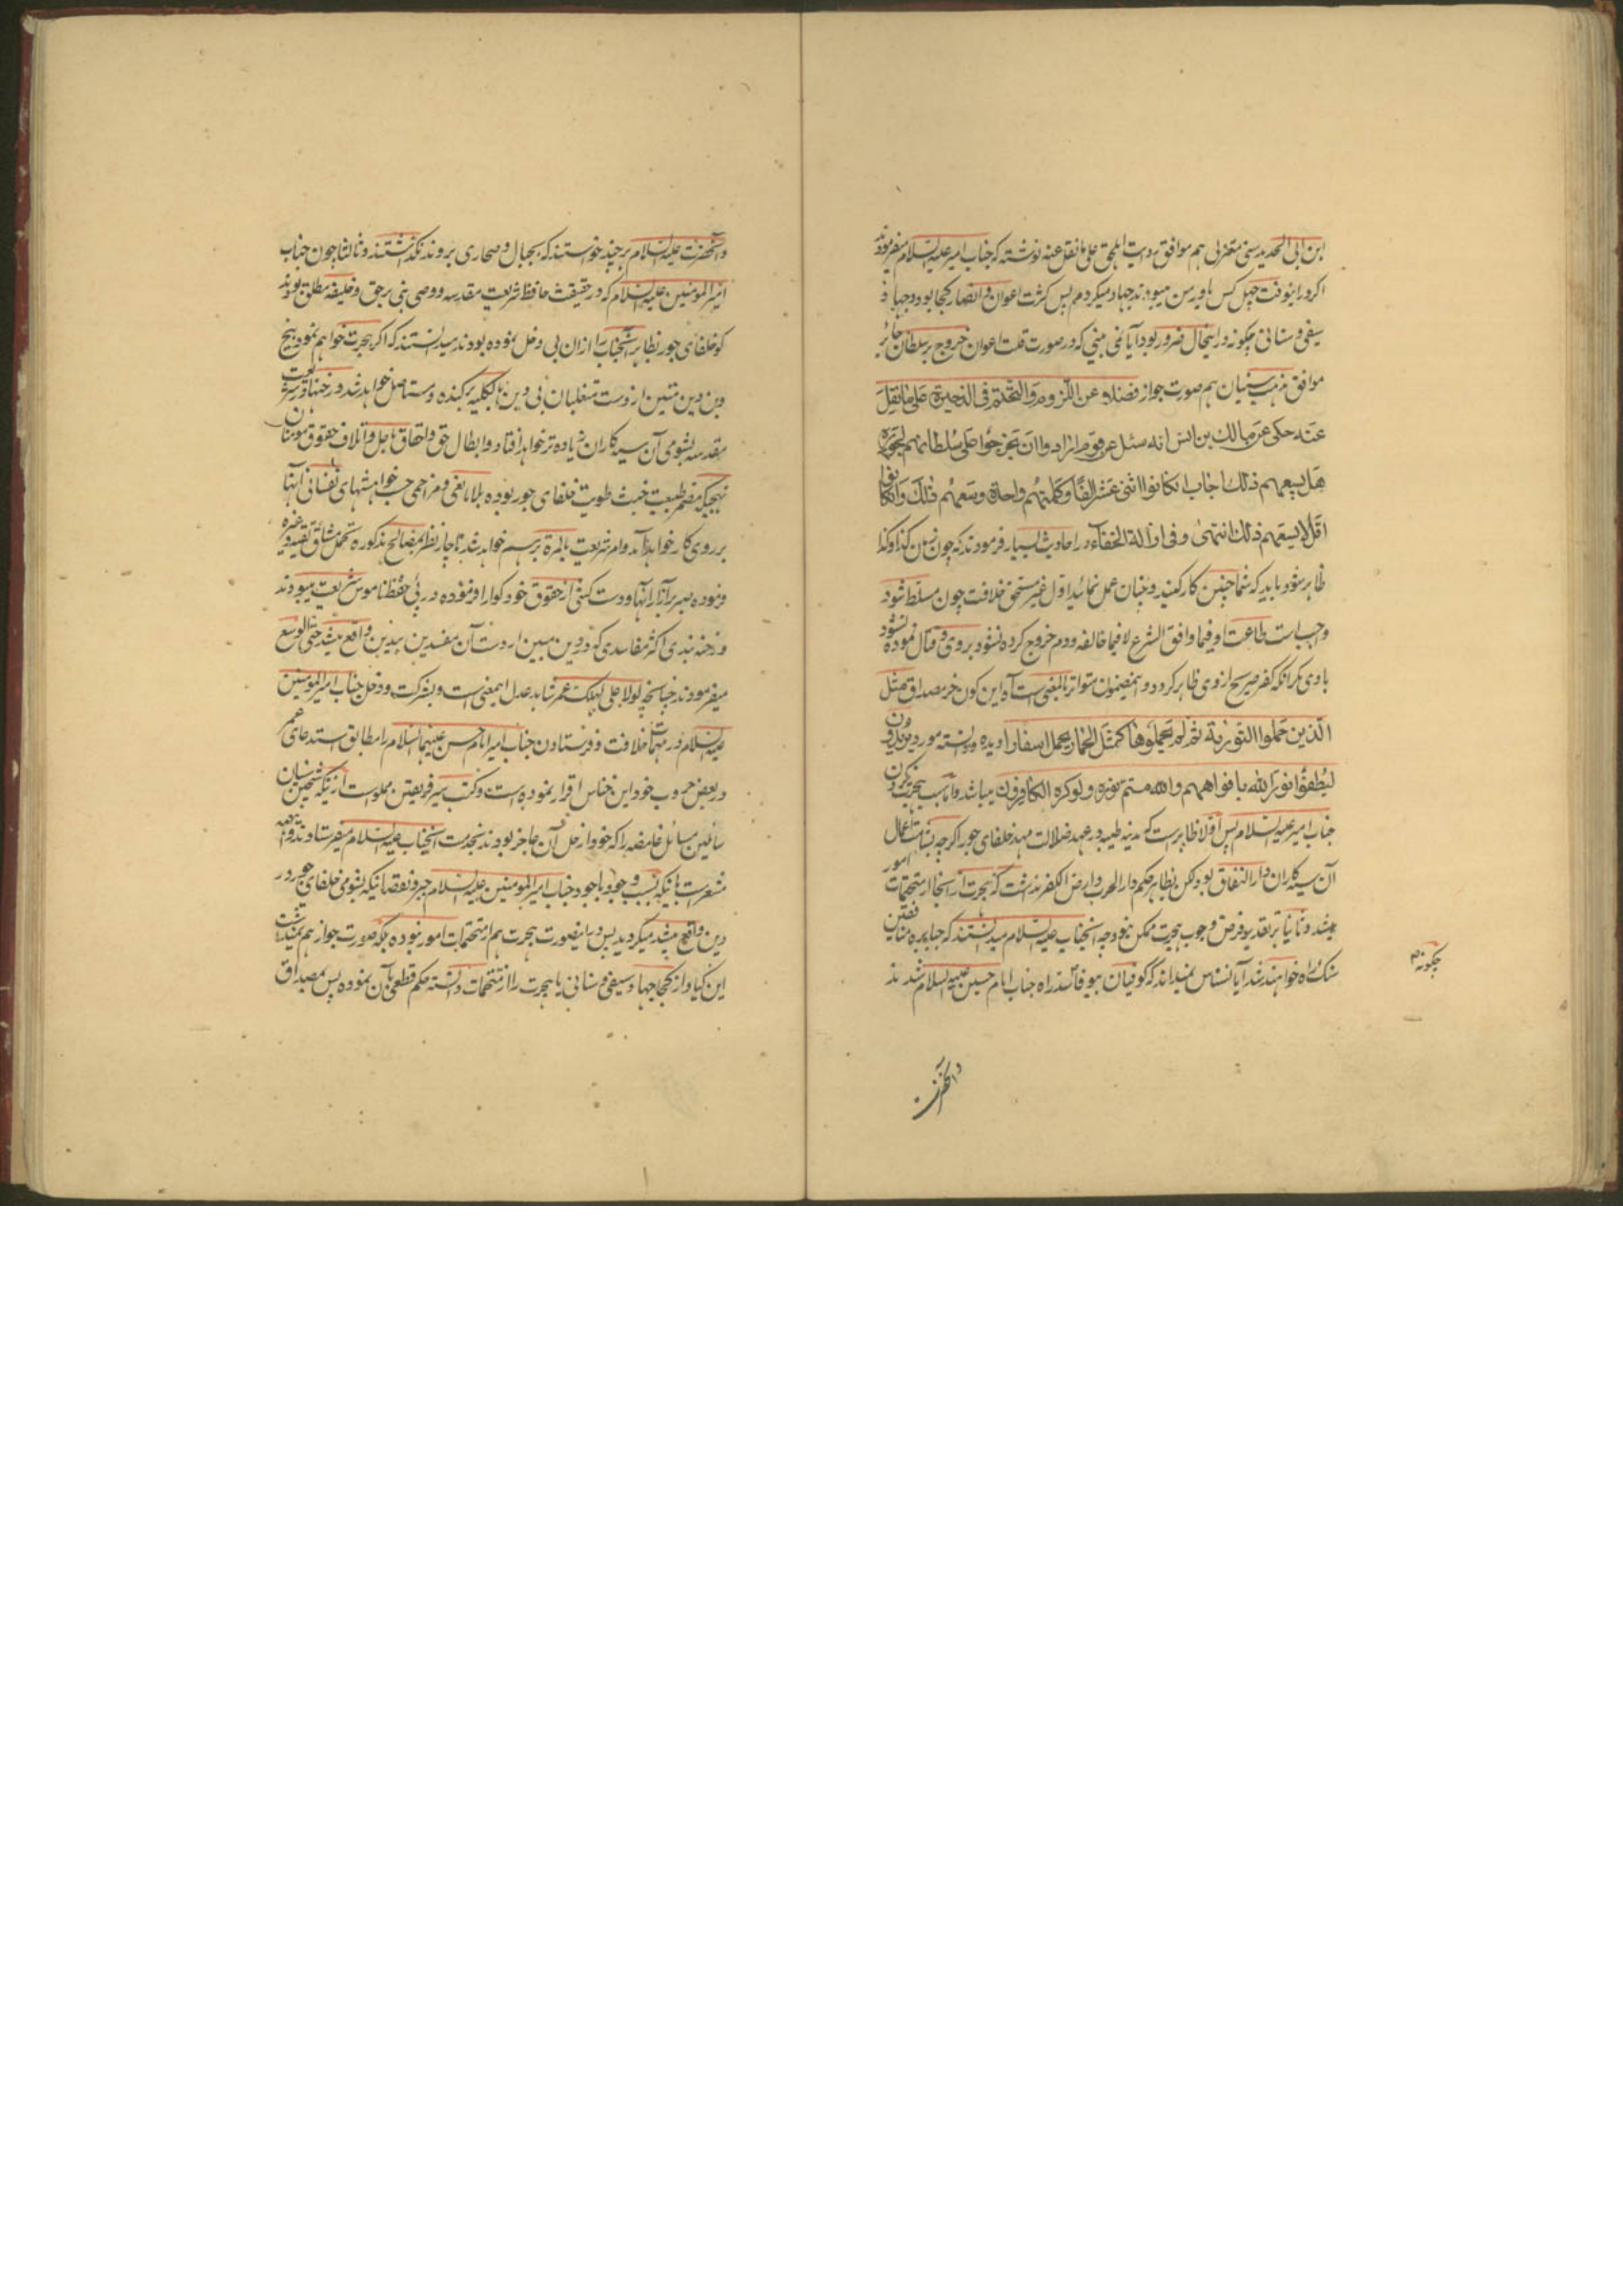 ابن ابی الحدید سنی معتزلی هم موافق روایت ابلجی علی ما نقل عنه نوشته که جناب امیر علیه السلام میفرمودند
اگر در انوقت چهل کس یاور من میبودند جهاد میکردم پس کثرت اعوان و انصار کجا بود و جهاد
سیفی و سنانی چگونه در اینحال ضرور بود آیا نمی بینی که در صورت قلت اعوان خروج بر سلطان جائر
موافق مذهب سنیان هم صورت جواز فضلا عن اللزوم والتحتم فی الذخیرة علی ما نقل
عنه حکی عن مالک بن انس انه سئل عن قوم ارادوا ان یخرجوا علی سلطانهم لجوره
هل یسعهم ذلک اجاب ان کانوا اثنی عشر الفا وکلمتهم واحدة وسعهم ذلک وان کانوا
اقل لا یسعهم ذلک انتهی وفی ازالة الخفاء در احادیث بسیار فرمودند که چون زمان کذا وکذا
ظاهر شود باید که شما چنین کار کنید و چنان عمل نمائید اول غیر مستحق خلافت چون مسلط شود
واجب است طاعت او فیما وافق الشرع لا فیما خالفه ودوم خروج کرده نشود بر وی و قتال نموده نشود
با وی مگر آنکه کفر صریح از وی ظاهر گردد و این مضمون متواتر بالمعنی است آه این کون خر مصداق مثل
الذین حملوا التوریة ثم لم یحملوها کمثل الحمار یحمل اسفارا دیده ودانسته مورد یریدون
لیطفؤا نور الله بافواههم والله متم نوره ولو کره الکافرون میباشد واما سبب هجرت نکردن
جناب امیر علیه السلام پس اولا ظاهر است که مدینه طیبه در عهد ضلالت مهد خلفای جور اگر چه بشامت اعمال
آن سیه کاران دار النفاق بود لکن بظاهر حکم دار الحرب و ارض الکفر نداشت که هجرت از انجا از متحتمات امور
میشد و ثانیا بر تقدیر فرض وجوب هجرت ممکن نبود چه آنجناب علیه السلام میدانستند که جبابره منافقین
سنک راه خواهند شد آیا نسناس نمیداند که کوفیان بیوفا سد راه جناب امام حسین علیه السلام شدند
چگونه
وآنحضرت
وآنحضرت علیه السلام هر چند خواستند که بجبال و صحاری بروند نگذاشتند وثالثا چون جناب
امیر المومنین علیه السلام که در حقیقت حافظ شریعت مقدسه ووصی نبی برحق و خلیفه مطلق بودند
گو خلفای جور بظاهر آنجناب را ازان بی دخل نموده بودند میدانستند که اگر هجرت خواهم نمود بیخ
وبن دین متین از دست متغلبان بی دین بالکلیه برکنده ومستاصل خواهد شد و رخنها در شریعت
مقدسه بشومی آن سیه کاران زیاده تر خواهد افتاد و ابطال حق واحقاق باطل و اتلاف حقوق مومنان
نهجیکه مضمر طبیعت خبث طویت خلفای جور بوده بلا مانعی و مزاحمی حسب خواهشهای نفسانی آنها
بر روی کار خواهد آمد وامر شریعت بالمرة برهم خواهد شد ناچار نظر بمصالح مذکوره تحمل مشاق تقیه وغیره
فرموده صبر بر آزار آنها ودست کشی از حقوق خود گوارا فرموده در پی حفظ ناموس شریعت میبودند
ورخنه بندی اکثر مفاسدی که در دین مبین از دست آن مفسدین بیدین واقع میشد حتی الوسع
میفرمودند چنانچه لولا علی لهلک عمر شاهد عدل اینمعنی است و شرکت ودخل جناب امیر المومنین
علیه السلام در مهمات خلافت وفرستادن جناب امیر امام حسن علیهما السلام را مطابق استدعای عمر
در بعض حروب خود این خناس اقرار نموده است وکتب سیر فریقین مملوست از نیکه شیخین سنیان
سائلین مسائل غامضه را که خود از حل آن عاجز بودند بخدمت آنجناب علیه السلام میفرستادند
مشعرست بانیکه بسبب وجود باجود جناب امیر المومنین علیه السلام جبر و نقصانیکه بشومی خلفای جور در
دین واقع میشد میگردید پس در اینصورت هجرت هم از متحتمات امور نبوده بلکه صورت جواز هم نمیداشت
این گیاوار کجا جهاد سیفی و سنانی یا هجرت را از متحتمات دانسته حکم قطعی بآن نموده پس بمصداق